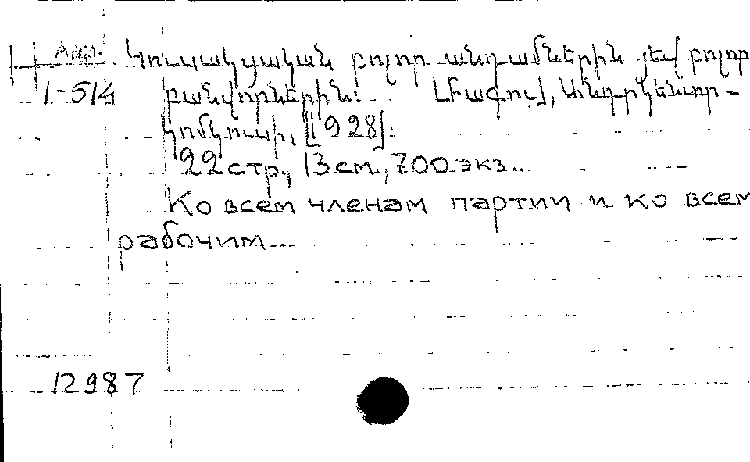 Арм.
1-514
Կուսակցական բոլոր անդամներին յեվ բոլոր
բանվորներին:
կոմկուսի, [1928].
22 стр., 13 см., 700 экз..
Ко всем членам партии и ко всем
рабочим...
12987